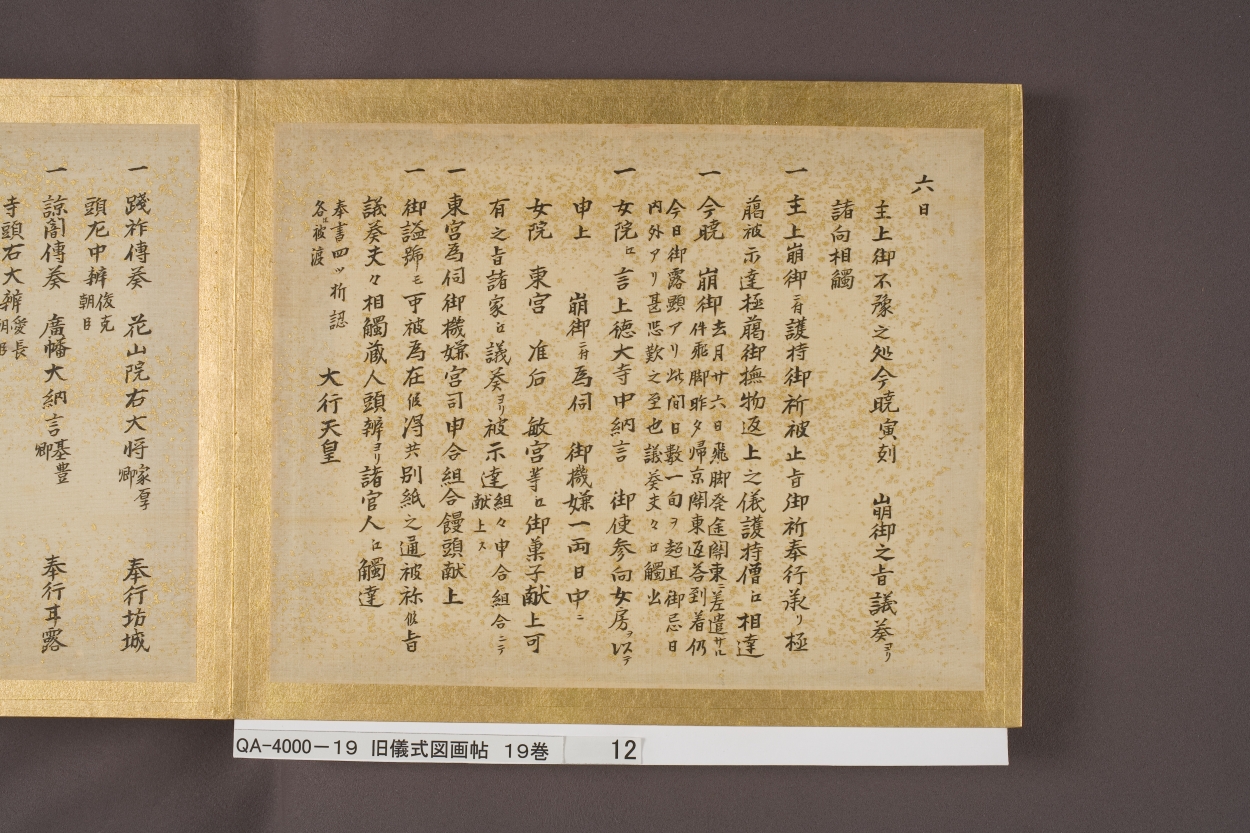 六日
主上御不豫之処今暁寅刻 崩御之旨議奏ヨリ
諸向相觸
一 主上崩御ニ付護持御祈被止旨御祈奉行承リ極
﨟被示達極﨟御撫物返上之儀護持僧江相達
一 今暁 崩御去月廿六日飛脚発途關東ニ差遣サル
件飛脚昨夕帰京關東返答到着仍
今日御露顕アリ此間日数一旬ヲ超且御忌日
内外アリ甚悲歎之至也議奏夫々江觸出
一 女院江言上徳大寺中納言 御使参向女房ヲ以テ
申上 崩御ニ付為伺 御機嫌一両日中ニ
女院 東宮 准后 敏宮等江御菓子献上可
有之旨諸家江議奏ヨリ被示達組々申合組合ニテ
献上ス
一 東宮為伺御機嫌宮司申合組合饅頭献上
一 御諡號モ可被為在候得共別紙之通被称候旨
議奏夫々相觸蔵人頭辨ヨリ諸官人江觸達
奉書四ツ折認
各江被渡
大行天皇
一 踐祚傳奏 花山院右大将家厚卿 奉行坊城
頭左中辨俊克朝臣
一 諒闇傳奏 廣幡大納言基豊卿 奉行甘露
寺頭右大辨愛長朝臣
QA-4000-19 旧儀式図画帖 19巻 12